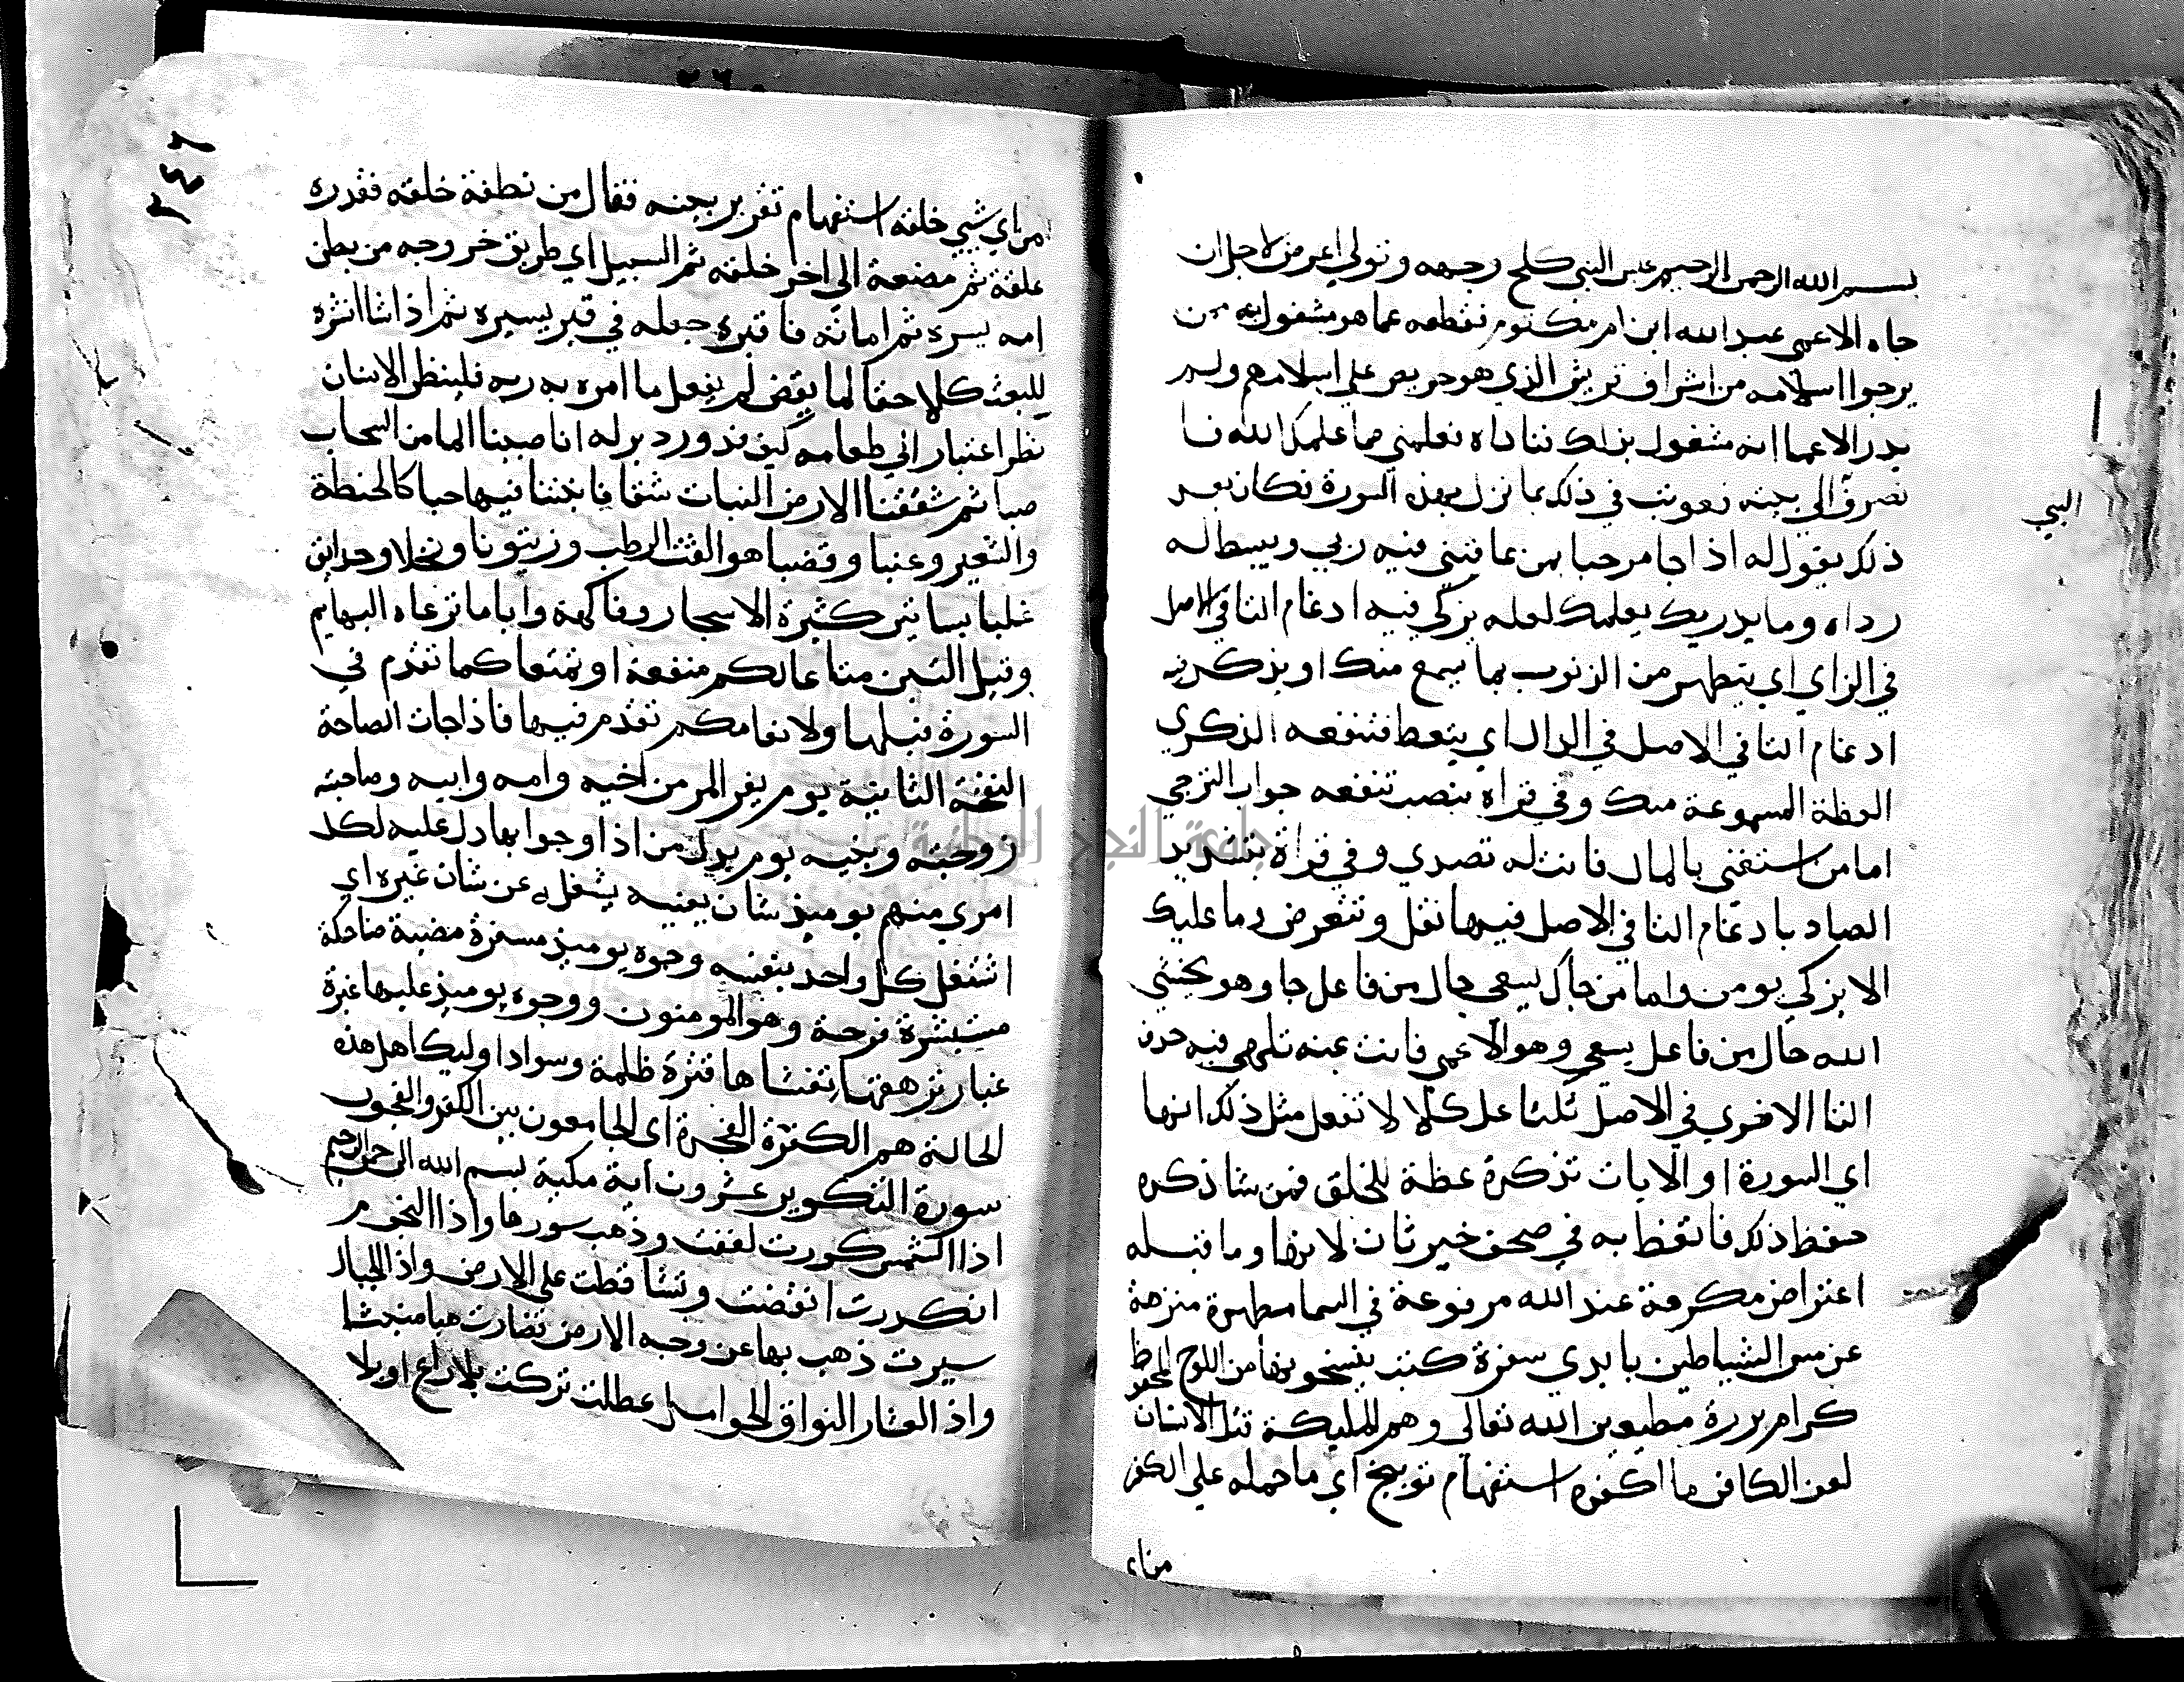 بسم الله الرحمن الرحيم عبس النبي كلح وجهه وتولي اعرض لاجل ان
جاه الاعمي عبد الله ابن ام مكتوم فقطعه عما هو مشغول به ممن
يرجوا اسلامه من اشراف قريش الذي هو حريص علي اسلامهم ولم
يدر الاعما انه مشغول بذلك فناداه فعلمني مما علمك الله فا
نصرف الي بيته فعوتب في ذلك بما نزل بهذه السورة فكان بعد
النبي
ذلك يقول له اذا جا مرحبا بمن عاتبني فيه ربي ويبسط له
رداه وما يدريك يعلمك لعله يزكي فيه ادغام التا في الاصل
في الزاي اي يتطهر من الذنوب بما يسمع منك او يذكر فيه
ادغام التا في الاصل في الذال اي يتعظ فتنفعه الذكري
العظة المسموعة منك وفي قراة بنصب تنفعه جواب الترجي
اما من استغني بالمال فانت له تصدي وفي قراة بتشديد
الصاد بادغام التا في الاصل فيها تقبل وتتعرض وما عليك
الا يزكي يومن واما من جاك يسعي حال من فاعل جا وهو يخشي
الله حال من فاعل يسعي وهو الاعمي فانت عنه تلهي فيه حذف
التا الاخري في الاصل كلا لا تفعل مثل ذلك انها
اي السورة او الايات تذكرة عظة للخلق فمن شا ذكره
حفظ ذلك فاتعظ به في صحف خبر ثان لانها وما قبله
اعتراض مكرمة عند الله مرفوعة في السما مطهرة منزهة
عن مس الشياطين بايدي سفرة كتبة ينسخونها من اللوح المحفوظ
كرام بررة مطيعين الله تعالي وهم المليكة قتل الانسان
لعن الكافر ما اكفره استفهام توبيخ اي ما حمله علي الكفر
من اي
٣٤٦
من اي شيي خلقه استفهام تقرير بينه فقال من نطفة خلقه فقدره
علقة ثم مضغة الي اخر خلقه ثم السبيل اي طريق خروجه من بطن
امه يسره ثم اماته فاقبره جعله في قبر يستره ثم اذا شا انشره
للبعث كلا حقا لما يقض لم يفعل ما امره به ربه فلينظر الانسان
نظر اعتبار الي طعامه كيف قدر ودبر له انا صببنا الما من السحاب
صبا ثم شققنا الارض النبات شقا فانبتنا فيها حبا كالحنطة
والشعير وعنبا وقضبا هو القت الرطب وزيتونا ونخلا وحدايق
غلبا بساتين كثيرة الاشجار وفاكهة وابا ما ترعاه البهايم
وقيل التبن متاعا لكم منفعة او تمتعا كما تقدم في
السورة قبلها ولانعامكم تقدم فيها فاذا جات الصاخة
النفخة الثانية يوم يفر المر من اخيه وامه وابيه وصاحبته
زوجته وبنيه يوم بدل من اذا وجوابها دل عليه لكل
امري منهم يوميذ شان يغنيه يشغله عن شان غيره اي
اشتغل كل واحد بنفسه وجوه يوميذ مسفرة مضية ضاحكة
مستبشرة فرحة وهو المومنون ووجوه يوميذ عليها غبرة
غبار ترهقها تغشاها قترة ظلمة وسواد اوليك اهل هذه
الحالة هم الكفرة الفجرة اي الجامعون بين الكفر والفجور
سورة التكوير عشرون اية مكية بسم الله الرحمن الرحيم
اذا الشمس كورت لففت وذهب بنورها واذا النجوم
انكدرت انقضت وتساقطت علي الارض واذا الجبال
سيرت ذهب بها عن وجه الارض فصارت هبا منبثا
واذا العشار النواق الحوامل عطلت تركت بلا راع او بلا
جامعة النجاح الوطنية